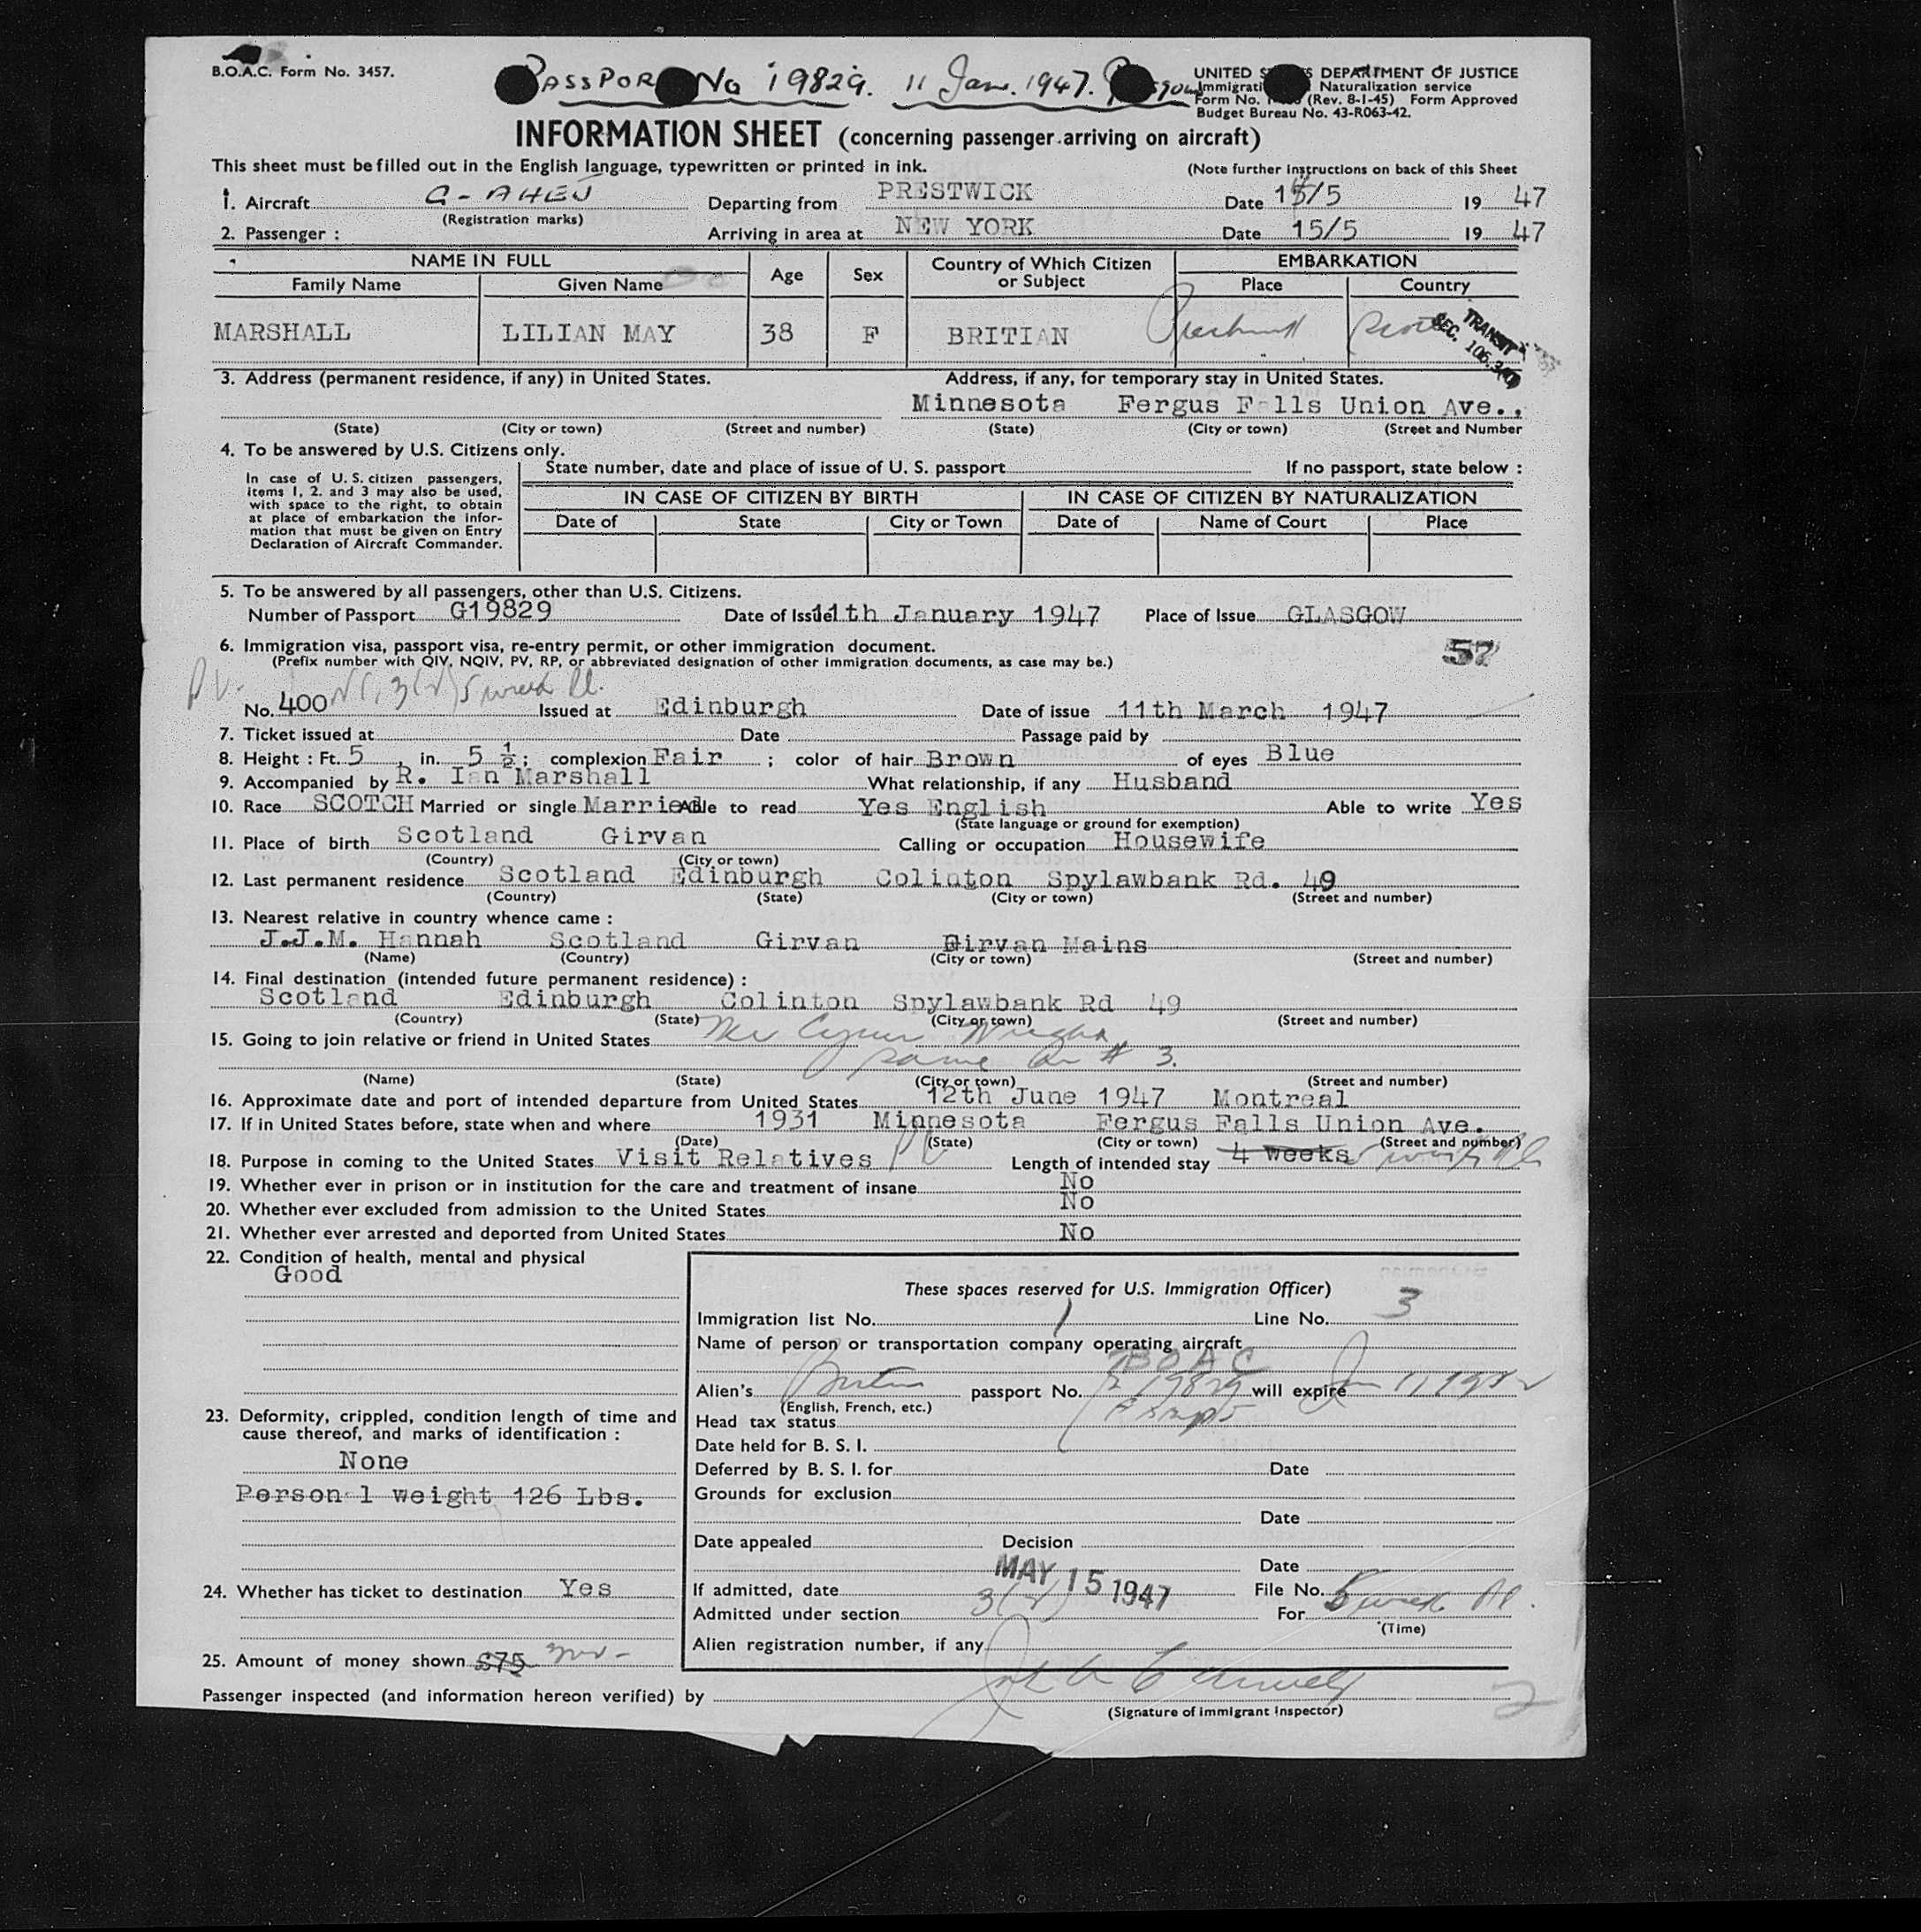 B.O.A.C. Form No. 3457.
PASSPOR No 19829. 11 Jan. 1947.
UNITED S S DEPARTMENT OF JUSTICE
Immigrati Naturalization service
Form No. (Rev. 8-1-45) Form Approved
Budget Bureau No. 43-R063-42.
INFORMATION SHEET (concerning passenger arriving on aircraft)
This sheet must be filled out in the English language, typewritten or printed in ink. (Note further instructions on back of this Sheet
1. Aircraft G-AHEJ Departing from PRESTWICK Date 15/5 19 47
(Registration marks)
2. Passenger : Arriving in area at NEW YORK Date 15/5 19 47
NAME IN FULL Age Sex Country of Which Citizen or Subject EMBARKATION
Family Name Given Name Place Country
MARSHALL LILIAN MAY 38 F BRITIAN Prestwick
TRANSIT
SEC. 106.3(
3. Address (permanent residence, if any) in United States. Address, if any, for temporary stay in United States.
Minnesota Fergus Falls Union Ave.,
(State) (City or town) (Street and number) (State) (City or town) (Street and Number
4. To be answered by U.S. Citizens only.
In case of U.S. citizen passengers, items 1, 2. and 3 may also be used, with space to the right, to obtain at place of embarkation the information that must be given on Entry Declaration of Aircraft Commander.
State number, date and place of issue of U. S. passport If no passport, state below :
IN CASE OF CITIZEN BY BIRTH IN CASE OF CITIZEN BY NATURALIZATION
Date of State City or Town Date of Name of Court Place
5. To be answered by all passengers, other than U.S. Citizens.
Number of Passport G19829 Date of Issue 11th January 1947 Place of Issue GLASGOW
6. Immigration visa, passport visa, re-entry permit, or other immigration document. 57
(Prefix number with QIV, NQIV, PV, RP, or abbreviated designation of other immigration documents, as case may be.)
PV.
No. 400 3(2) 5 Issued at Edinburgh Date of issue 11th March 1947
7. Ticket issued at Date Passage paid by
8. Height : Ft. 5 , in. 5 ½ ; complexion Fair ; color of hair Brown of eyes Blue
9. Accompanied by R. Ian Marshall What relationship, if any Husband
10. Race SCOTCH Married or single Married Able to read Yes English Able to write Yes
(State language or ground for exemption)
11. Place of birth Scotland Girvan Calling or occupation Housewife
(Country) (City or town)
12. Last permanent residence Scotland Edinburgh Colinton Spylawbank Rd. 49
(Country) (State) (City or town) (Street and number)
13. Nearest relative in country whence came :
J.J.M. Hannah Scotland Girvan Girvan Mains
(Name) (Country) (City or town) (Street and number)
14. Final destination (intended future permanent residence) :
Scotland Edinburgh Colinton Spylawbank Rd 49
(Country) (State) (City or town) (Street and number)
15. Going to join relative or friend in United States Mr Wright
same as # 3.
(Name) (State) (City or town) (Street and number)
16. Approximate date and port of intended departure from United States 12th June 1947 Montreal
17. If in United States before, state when and where 1931 Minnesota Fergus Falls Union Ave.
(Date) (State) (City or town) (Street and number)
18. Purpose in coming to the United States Visit Relatives PV Length of intended stay 4 weeks
19. Whether ever in prison or in institution for the care and treatment of insane No
20. Whether ever excluded from admission to the United States No
21. Whether ever arrested and deported from United States No
22. Condition of health, mental and physical
Good
23. Deformity, crippled, condition length of time and cause thereof, and marks of identification :
None
Personal weight 126 Lbs.
24. Whether has ticket to destination Yes
25. Amount of money shown £75
These spaces reserved for U.S. Immigration Officer)
Immigration list No. 1 Line No. 3
Name of person or transportation company operating aircraft
BOAC
Alien's British passport No. 19829 will expire Jan 11, 1952
(English, French, etc.)
Head tax status
Date held for B. S. I.
Deferred by B. S. I. for Date
Grounds for exclusion
Date
Date appealed Decision
Date
If admitted, date MAY 15 1947 File No.
Admitted under section 3(2) For 5 weeks
(Time)
Alien registration number, if any
Passenger inspected (and information hereon verified) by
(Signature of immigrant Inspector)
2